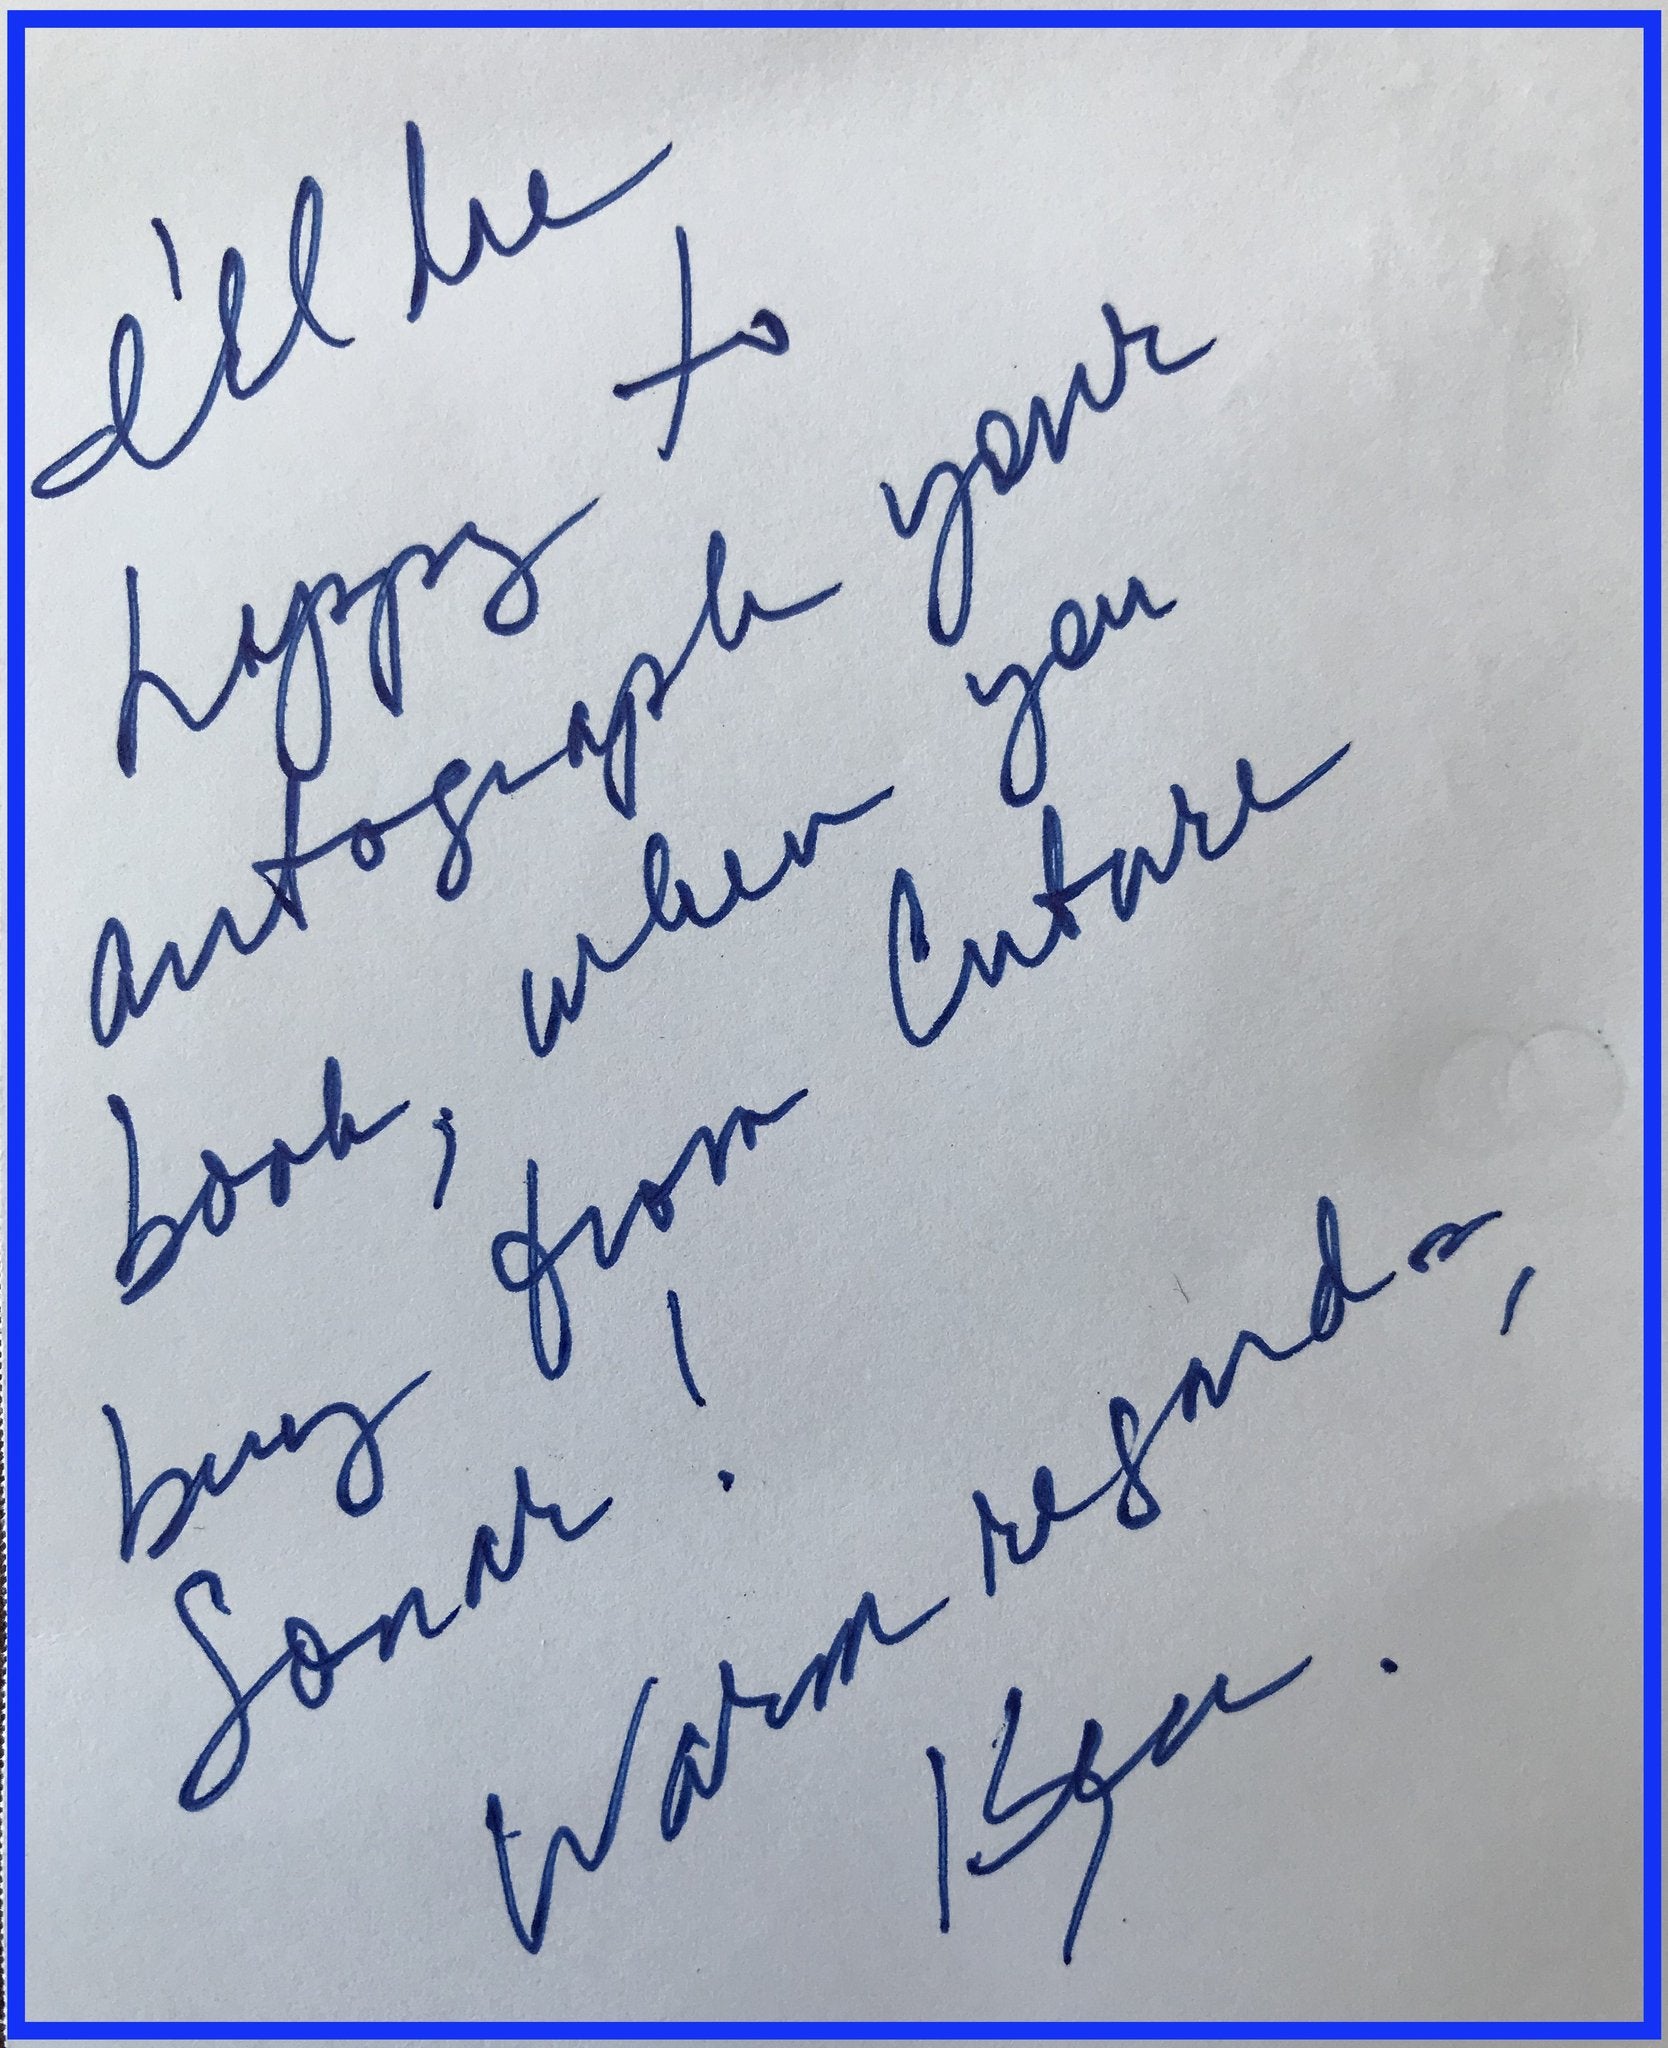 I'll be
happy to
autograph your
book, when you
buy from Cutare
Sonar!
Warm regards,